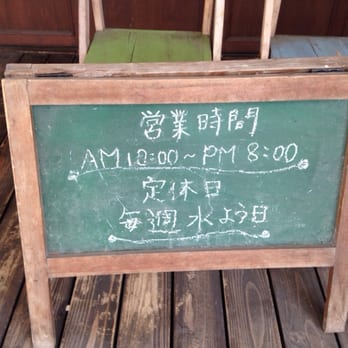 営業時間
AM10:00~PM8:00
定休日
毎週水よう日